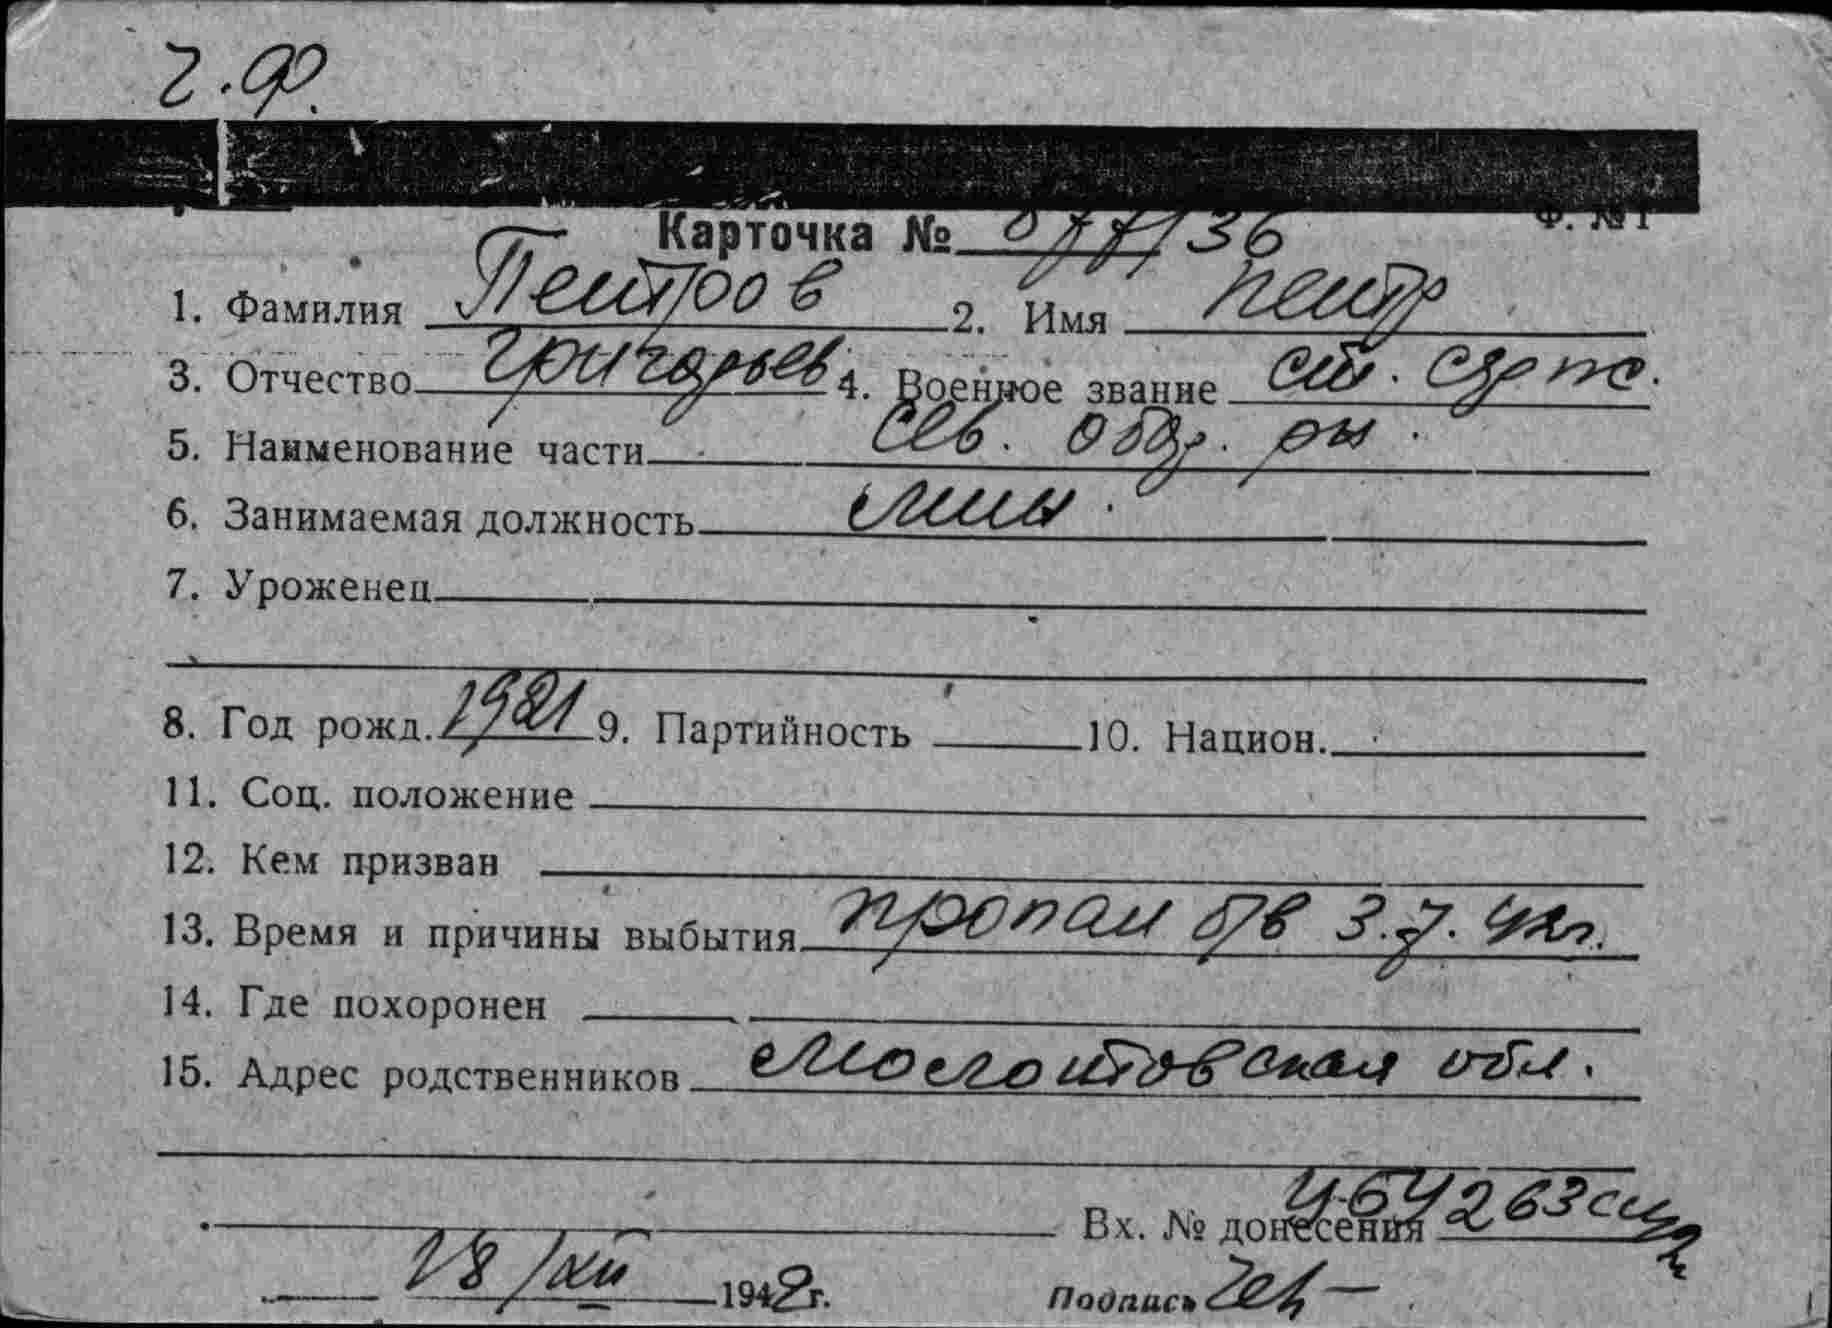 Ч.Ф.
Ф. № 1
Карточка № 077/36
1. Фамилия Петров 2. Имя Петр
3. Отчество Григорьев 4. Военное звание ст. серж.
5. Наименование части Сев. обор. р-н.
6. Занимаемая должность
7. Уроженец
8. Год рожд. 1921 9. Партийность 10. Национ.
11. Соц. положение
12. Кем призван
13. Время и причины выбытия пропал б/в 3.7.42г.
14. Где похоронен
15. Адрес родственников Молотовская обл.
Вх. № донесения
/XII 1942г.
Подпись